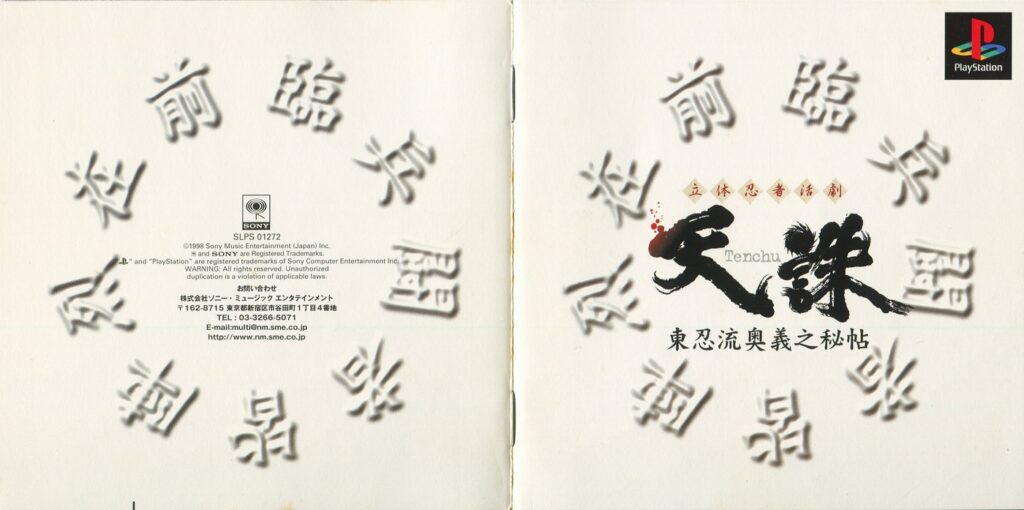 臨
兵
闘
者
皆
陣
烈
在
前
SONY
SLPS 01272
©1998 Sony Music Entertainment (Japan) Inc.
and SONY are Registered Trademarks.
" and "PlayStation" are registered trademarks of Sony Computer Entertainment Inc.
WARNING: All rights reserved. Unauthorized
duplication is a violation of applicable laws.
お問い合わせ
株式会社ソニー・ミュージック エンタテインメント
〒162-8715 東京都新宿区市谷田町1丁目4番地
TEL : 03-3266-5071
E-mail:multi@nm.sme.co.jp
http://www.nm.sme.co.jp
PlayStation
臨
兵
闘
者
皆
陣
烈
在
前
立体忍者活劇
天誅
Tenchu
東忍流奥義之秘帖